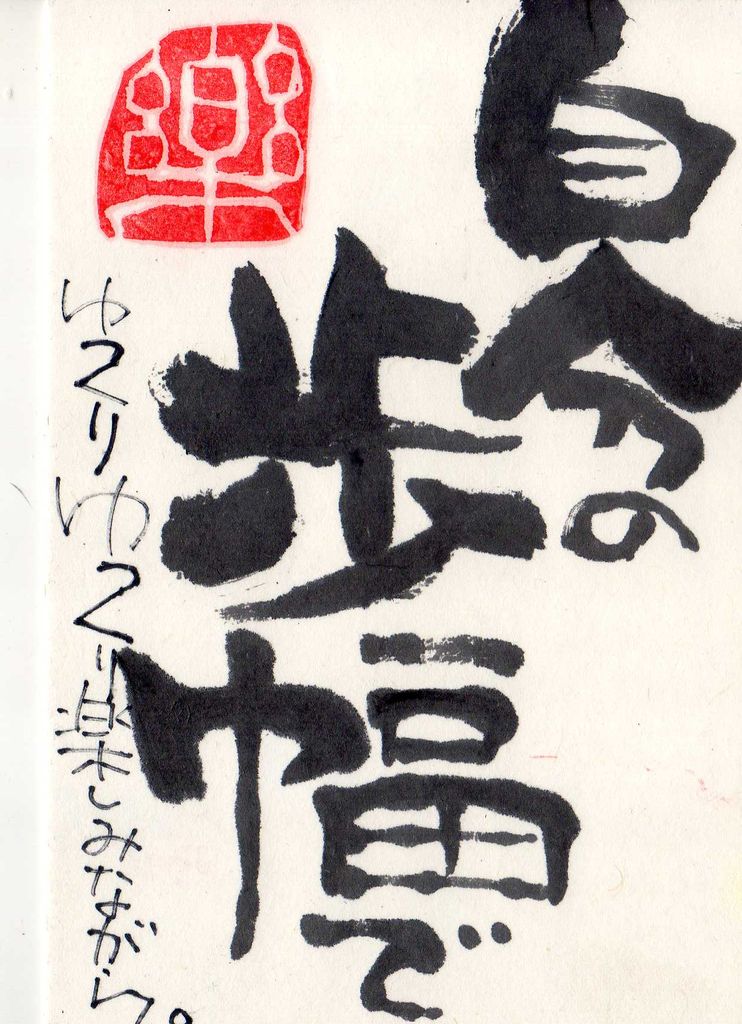 自分の
歩幅で
樂
ゆっくりゆっくり楽しみながら。